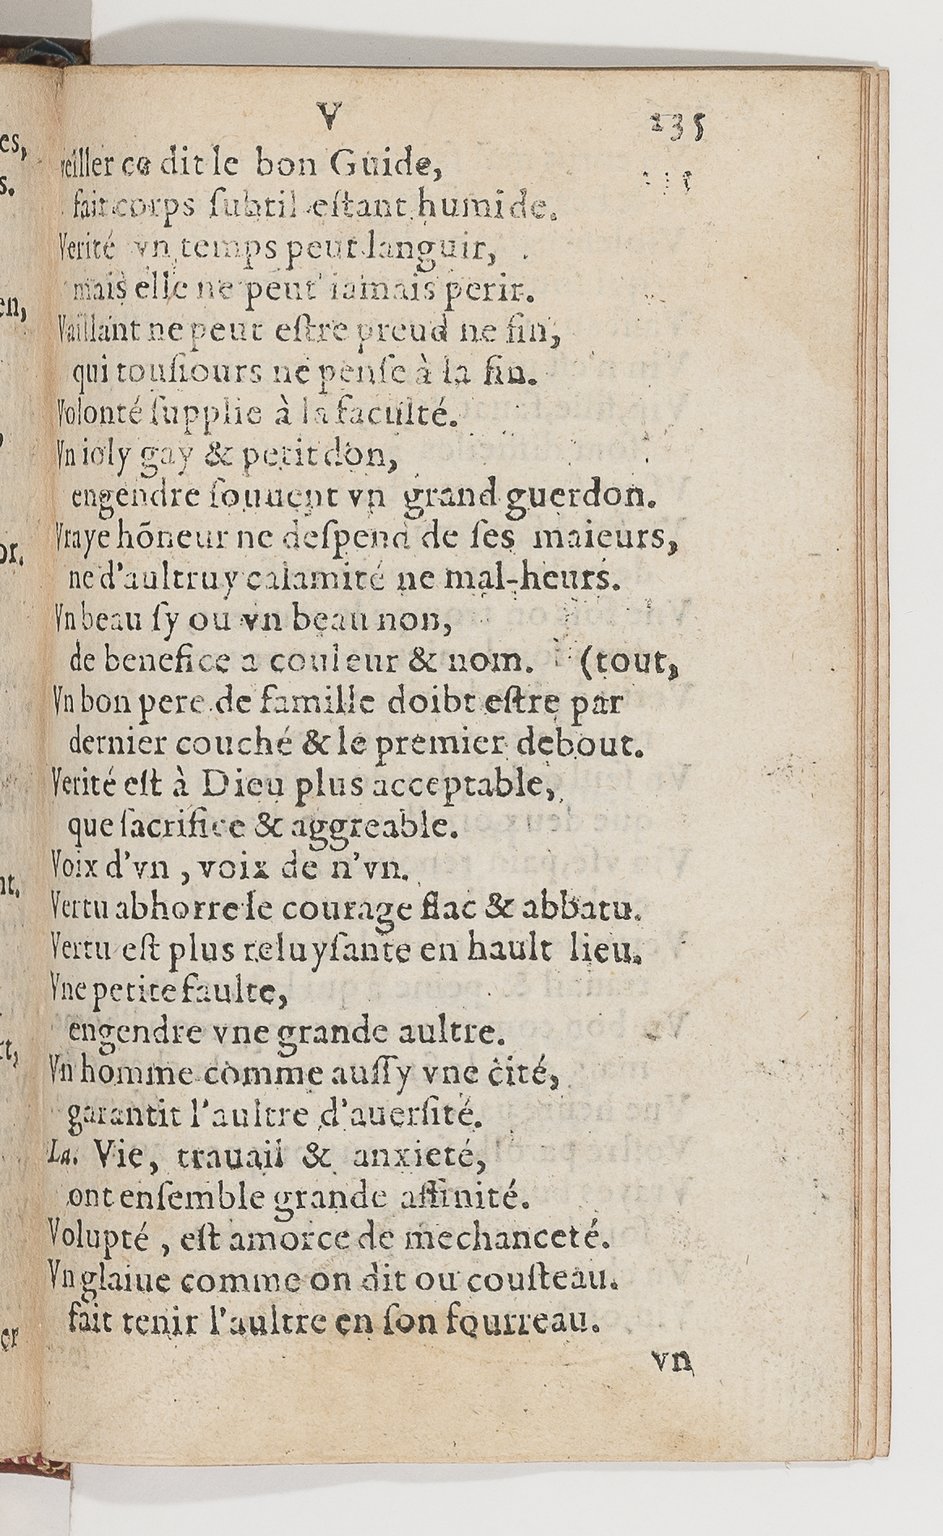 V
135
veiller ce dit le bon Guide,
fait corps ſubtil eſtant humide.
Verité vn temps peut languir,
mais elle ne peut iamais perir.
Vaillant ne peut eſtre preud ne fin,
qui touſiours ne penſe à la fin.
Volonté ſupplie à la faculté.
Vn ioly gay & petit don,
engendre ſouuent vn grand guerdon.
Vraye hõneur ne deſpend de ſes maieurs,
ne d'aultruy calamité ne mal-heurs.
Vn beau ſy ou vn beau non,
de benefice a couleur & nom. (tout,
Vn bon pere de famille doibt eſtre par
dernier couché & le premier debout.
Verité eſt à Dieu plus acceptable,
que ſacrifice & aggreable.
Voix d'vn , voix de n'vn.
Vertu abhorre le courage flac & abbatu.
Vertu eſt plus reluyſante en hault lieu.
Vne petite faulte,
engendre vne grande aultre.
Vn homme comme auſſy vne cité,
garantit l'aultre d'auerſité.
La. Vie, trauail & anxieté,
ont enſemble grande affinité.
Volupté , eſt amorce de mechanceté.
Vn glaiue comme on dit ou couſteau.
fait tenir l'aultre en ſon fourreau.
vn